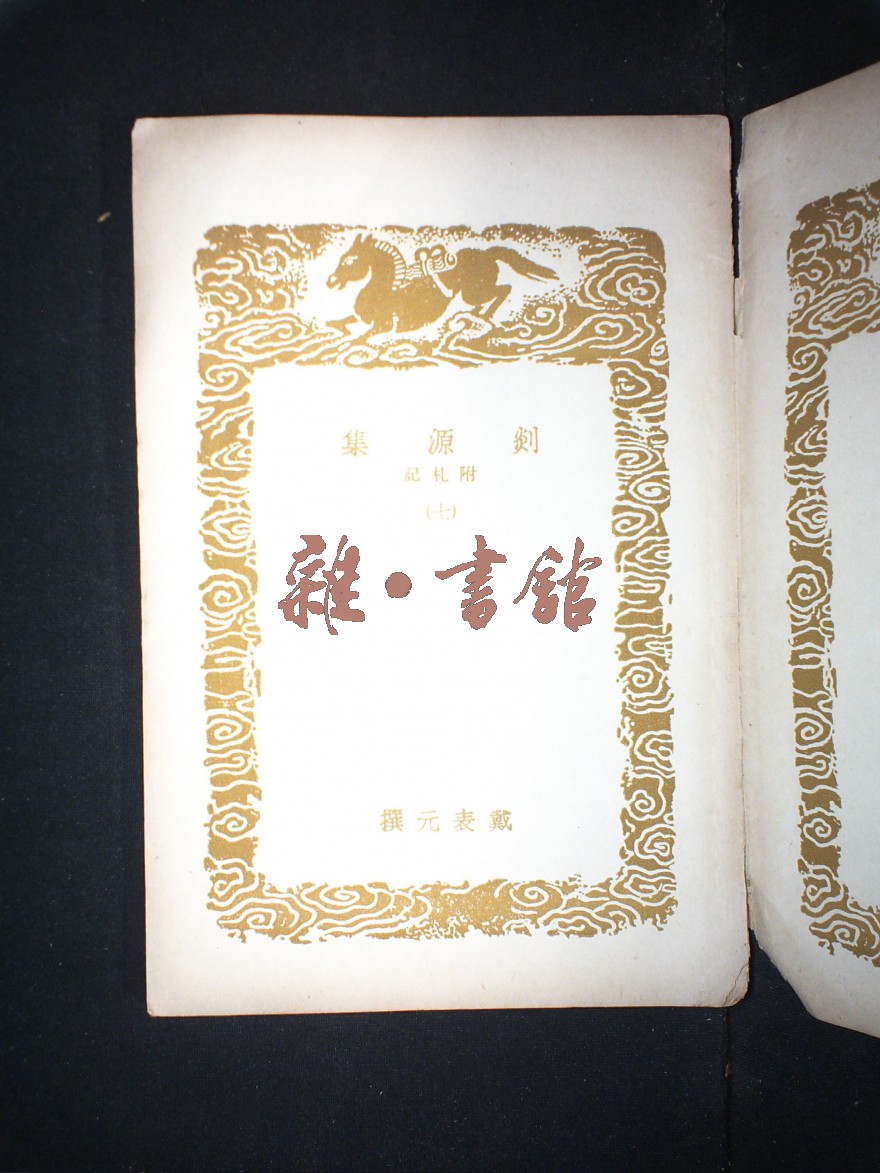 剡源集
附札記
(七)
雜•書館
戴表元撰